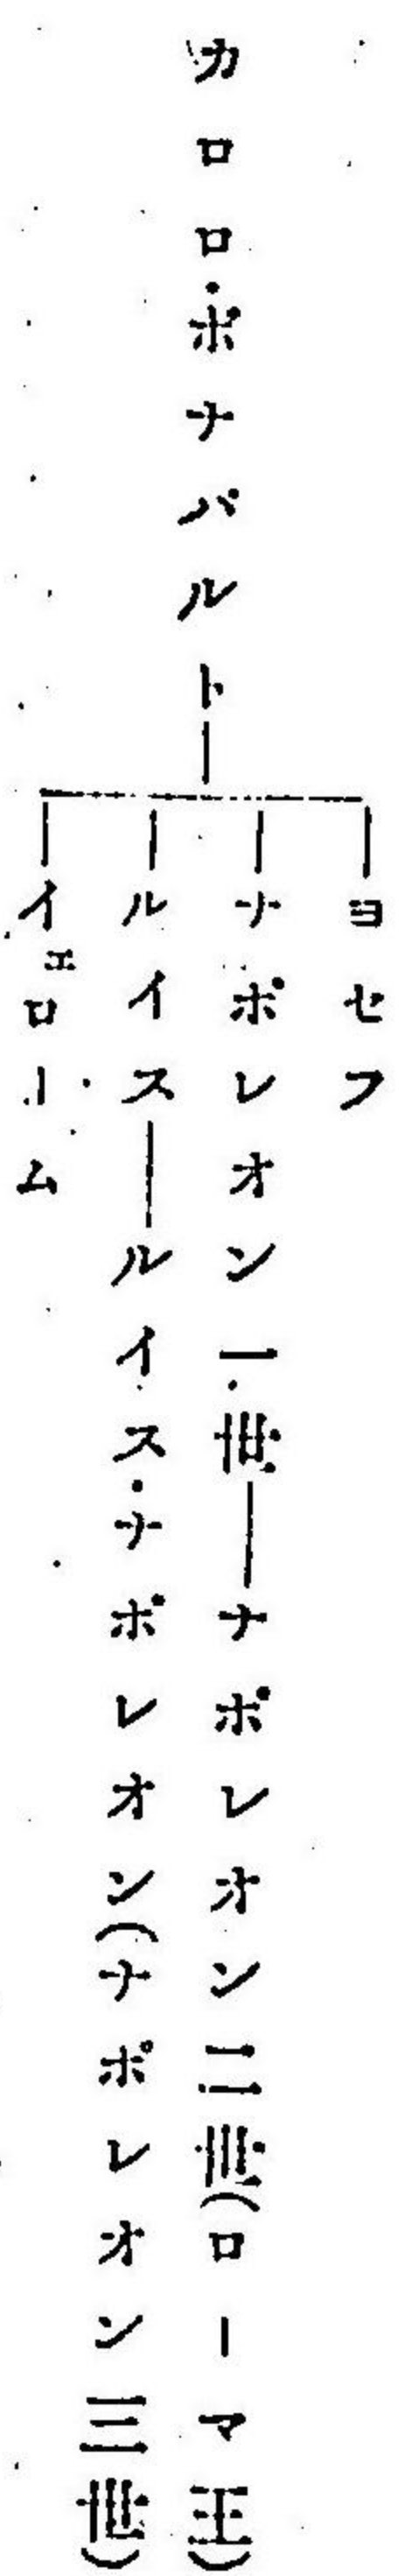 カロロ・ボナパルト
ヨセフ
ナポレオン一世―ナポレオン二世(ローマ王)
ルイス―ルイス・ナポレオン(ナポレオン三世)
イェローム